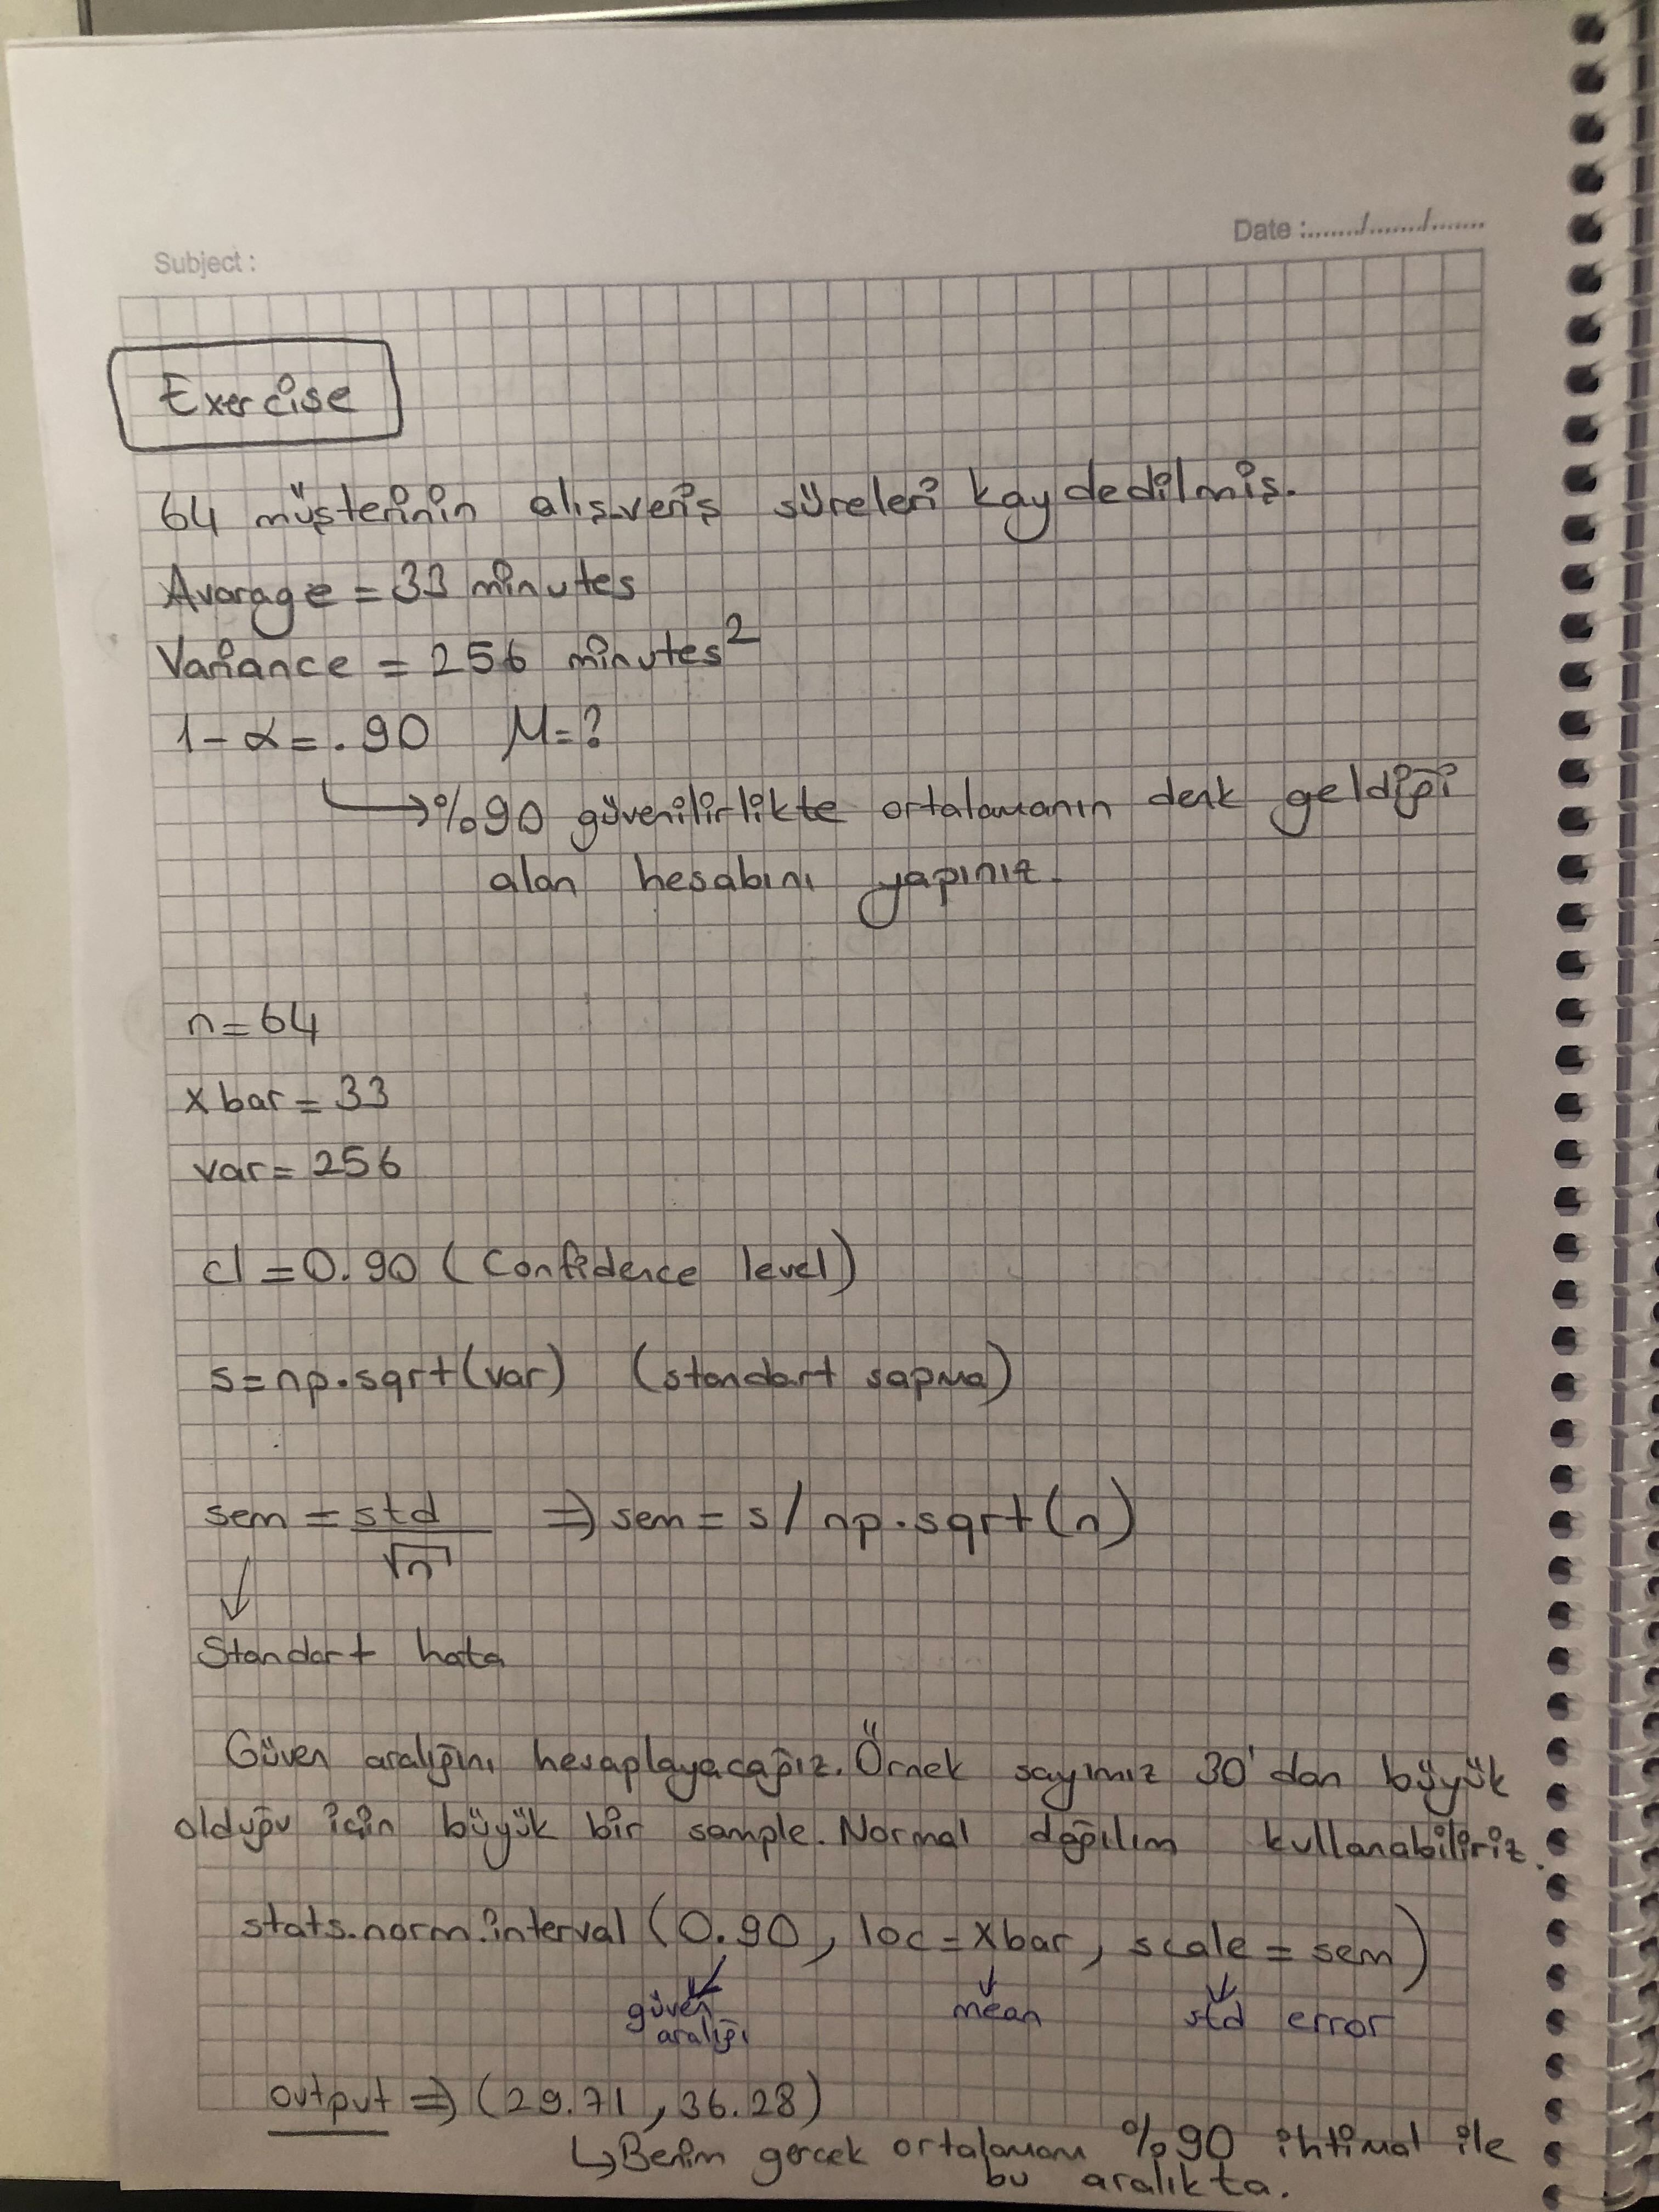 Date :......../......../.......
Subject :
Exercise
64 müşterinin alışveriş süreleri kaydedilmiş.
Avarage = 33 minutes
Variance = 256 minutes²
1-α = .90 M=?
→ %90 güvenilirlikte ortalamanın denk geldiği
alan hesabını yapınız.
n=64
xbar = 33
var = 256
cl = 0.90 (Confidence level)
s = np.sqrt(var) (standart sapma)
sem = std/√n ⇒ sem = s / np.sqrt(n)
Standart hata
Güven aralığını hesaplayacağız. Örnek sayımız 30'dan büyük
olduğu için büyük bir sample. Normal dağılım kullanabiliriz.
stats.norm.interval (0.90, loc = xbar, scale = sem)
güven aralığı mean std error
output ⇒ (29.71, 36.28)
↳ Benim gerçek ortalamam %90 ihtimal ile
bu aralıkta.